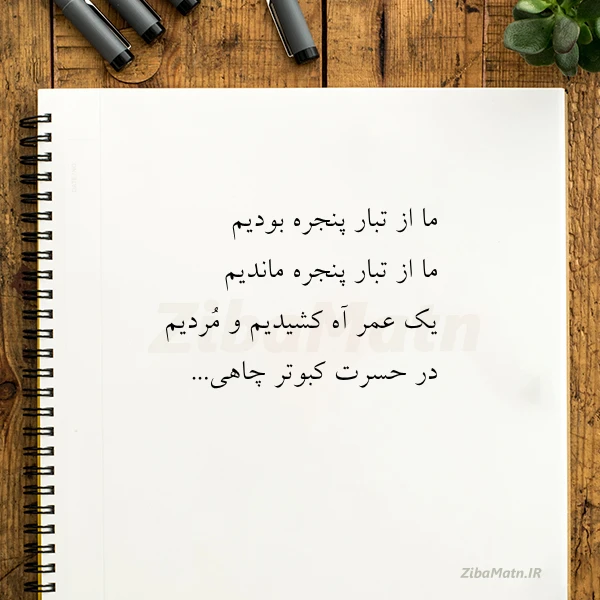 ما از تبار پنجره بودیم
ما از تبار پنجره ماندیم
یک عمر آه کشیدیم و مُردیم
در حسرت کبوتر چاهی...
ZibaMatn
ZibaMatn.IR